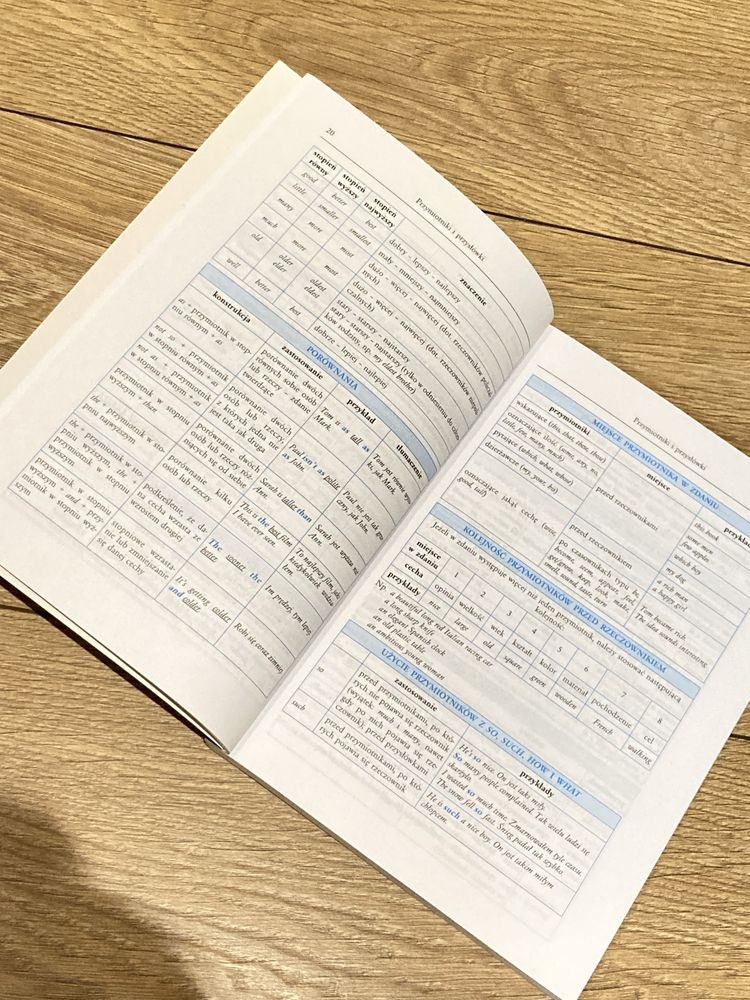 20
Przymiotniki i przysłówki
stopień równy stopień wyższy stopień najwyższy znaczenie
good better best dobry – lepszy – najlepszy
little smaller smallest mały – mniejszy – najmniejszy
many more most dużo – więcej – najwięcej (dot. rzeczowników
nych)
much more most dużo – więcej – najwięcej (dot. rzeczowników
czalnych)
old older oldest stary – starszy – najstarszy
elder eldest stary – starszy – najstarszy (tylko w odniesieniu do
ków rodziny, np. my eldest brother)
well better best dobrze – lepiej – najlepiej
PORÓWNANIA
konstrukcja zastosowanie przykład tłumaczenie
as + przymiotnik w stop-
niu równym + as
porównanie dwóch
równych sobie osób
lub rzeczy – zdanie
twierdzące
Tom is as tall as
Mark.
Tom jest równie
ki, jak Mark.
not so + przymiotnik
w stopniu równym + as
not as + przymiotnik
w stopniu równym + as
porównanie dwóch
osób lub rzeczy,
z których jedna nie
jest taka jak druga
Paul isn't as polite
as John.
Paul nie jest tak
czny, jak John.
przymiotnik w stopniu
wyższym + than
porównanie dwóch
osób lub rzeczy róż-
niących się od siebie
Sarah is taller than
Ann.
Sarah jest wyższa
Ann.
the + przymiotnik w sto-
pniu najwyższym
porównanie kilku
osób lub rzeczy
This is the best film
I have ever seen.
To najlepszy film, jaki
kiedykolwiek
łem.
the + przymiotnik w sto-
pniu wyższym, the +
przymiotnik w stopniu
wyższym
podkreślenie, że da-
na cecha wzrasta ze
wzrostem drugiej
The sooner the
better.
Im prędzej, tym lepiej.
przymiotnik w stopniu
wyższym + and + przy-
miotnik w stopniu wyż-
szym
stopniowe wzrasta-
nie lub zmniejszanie
się danej cechy
It's getting colder
and colder.
Robi się coraz zimniej.
Przymiotniki i przysłówki
MIEJSCE PRZYMIOTNIKA W ZDANIU
przymiotniki miejsce
wskazujące (this, that, these, those)
oznaczające ilość (some, any, no,
little, few, many, much)
pytające (which, what, whose)
dzierżawcze (my, your, his)
przed rzeczownikami
this book
some men
few apples
which boy
my dog
oznaczające jakąś cechę (nice,
good, tall)
przed rzeczownikiem
a rich man
a happy girl
po czasownikach typu be,
become, seem, appear, feel,
get/grow, keep, look, make,
smell, sound, taste, turn
Tom became rich.
The idea sounds interesting.
KOLEJNOŚĆ PRZYMIOTNIKÓW PRZED RZECZOWNIKIEM
Jeżeli w zdaniu występuje więcej niż jeden przymiotnik, należy stosować następującą
kolejność:
miejsce w zdaniu 1 2 3 4 5 6 7 8
cecha opinia wielkość wiek kształt kolor materiał pochodzenie cel
przykłady nice large old square green wooden French walking
Np.
a beautiful long red Italian racing car
a long sharp knife
an elegant Spanish clock
an old plastic table
an ambitious young woman
UŻYCIE PRZYMIOTNIKÓW Z SO, SUCH, HOW I WHAT
zastosowanie przykłady
so
przed przymiotnikami, po któ-
rych nie pojawia się rzeczownik
(wyjątek: much i many, nawet
gdy po nich pojawia się rze-
czownik); przed przysłówkami
He's so nice. On jest taki miły.
So many people complained. Tak wielu ludzi się
skarżyło.
I wasted so much time. Zmarnowałem tyle czasu.
The snow fell so fast. Śnieg padał tak szybko.
such
przed przymiotnikami, po któ-
rych pojawia się rzeczownik
He is such a nice boy. On jest takim miłym
chłopcem.